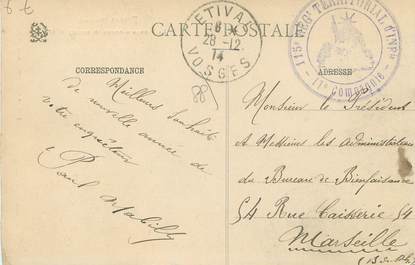 CARTE POSTALE
ETIVAL
28-12
14
VOSGES
115e REGt TERRITORIAL D'INFie
11e Compagnie
CORRESPONDANCE
ADRESSE
Meilleurs souhaits
de nouvelle année de
votre enquêteur
Paul
Monsieur le Président
et Messieurs les Administrateurs
du Bureau de Bienfaisance
54 Rue Caisserie 54
Marseille